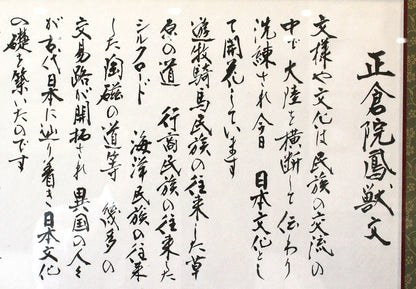 正倉院鳳獣文
文様や文化は民族の交流の
中で大陸を横断して伝わり
洗練され今日　日本文化とし
て開花しています
遊牧騎馬民族の往来した草
原の道　行商民族の往来た
シルクロード　海洋民族の往来
した陶磁の道等　幾多の
交易路が開拓され異国の人々
が古代日本に辿り着き日本文化
の礎を築いたのです